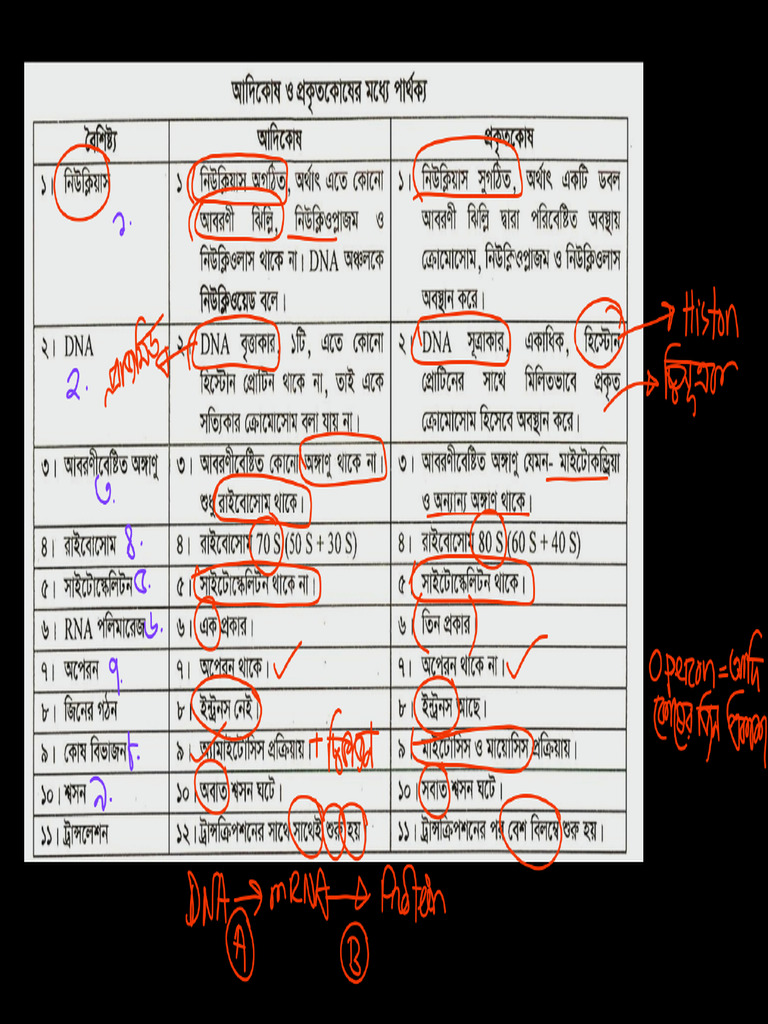 আদিকোষ ও প্রকৃতকোষের মধ্যে পার্থক্য
বৈশিষ্ট্য
আদিকোষ
প্রকৃতকোষ
১। নিউক্লিয়াস
১.
১ নিউক্লিয়াস অগঠিত, অর্থাৎ এতে কোনো
আবরণী ঝিল্লি, নিউক্লিওপ্লাজম ও
নিউক্লিওলাস থাকে না। DNA অঞ্চলকে
নিউক্লিওয়েড বলে।
১। নিউক্লিয়াস সুগঠিত, অর্থাৎ একটি ডবল
আবরণী ঝিল্লি দ্বারা পরিবেষ্টিত অবস্থায়
ক্রোমোসোম, নিউক্লিওপ্লাজম ও নিউক্লিওলাস
অবস্থান করে।
Histon
২। DNA
২.
২ DNA বৃত্তাকার, ১টি, এতে কোনো
হিস্টোন প্রোটিন থাকে না, তাই একে
সত্যিকার ক্রোমোসোম বলা যায় না।
২। DNA সূত্রাকার, একাধিক, হিস্টোন
প্রোটিনের সাথে মিলিতভাবে প্রকৃত
ক্রোমোসোম হিসেবে অবস্থান করে।
৩। আবরণীবেষ্টিত অঙ্গাণু
৩.
৩। আবরণীবেষ্টিত কোনো অঙ্গাণু থাকে না।
শুধু রাইবোসোম থাকে।
৩। আবরণীবেষ্টিত অঙ্গাণু যেমন- মাইটোকন্ড্রিয়া
ও অন্যান্য অঙ্গাণু থাকে।
৪। রাইবোসোম ৪.
৪। রাইবোসোম 70 S (50 S + 30 S)
৪। রাইবোসোম 80 S (60 S + 40 S)
৫। সাইটোস্কেলিটন ৫.
৫। সাইটোস্কেলিটন থাকে না।
৫ সাইটোস্কেলিটন থাকে।
৬। RNA পলিমারেজ ৬.
৬। এক প্রকার।
৬ তিন প্রকার
৭। অপেরন ৭.
৭। অপেরন থাকে।
৭। অপেরন থাকে না।
Operon = আদি
কোষের
৮। জিনের গঠন
৮। ইন্ট্রনস নেই
৮ ইন্ট্রনস আছে।
৯। কোষ বিভাজন ৮.
৯। অ্যামাইটোসিস প্রক্রিয়ায়। +
৯ মাইটোসিস ও মায়োসিস প্রক্রিয়ায়।
১০। শ্বসন ৯.
১০। অবাত শ্বসন ঘটে।
১০। সবাত শ্বসন ঘটে।
১১। ট্রান্সলেশন
১২। ট্রান্সক্রিপশনের সাথে সাথেই শুরু হয়
১১। ট্রান্সক্রিপশনের পর বেশ বিলম্বে শুরু হয়।
DNA → mRNA → Protein
A B